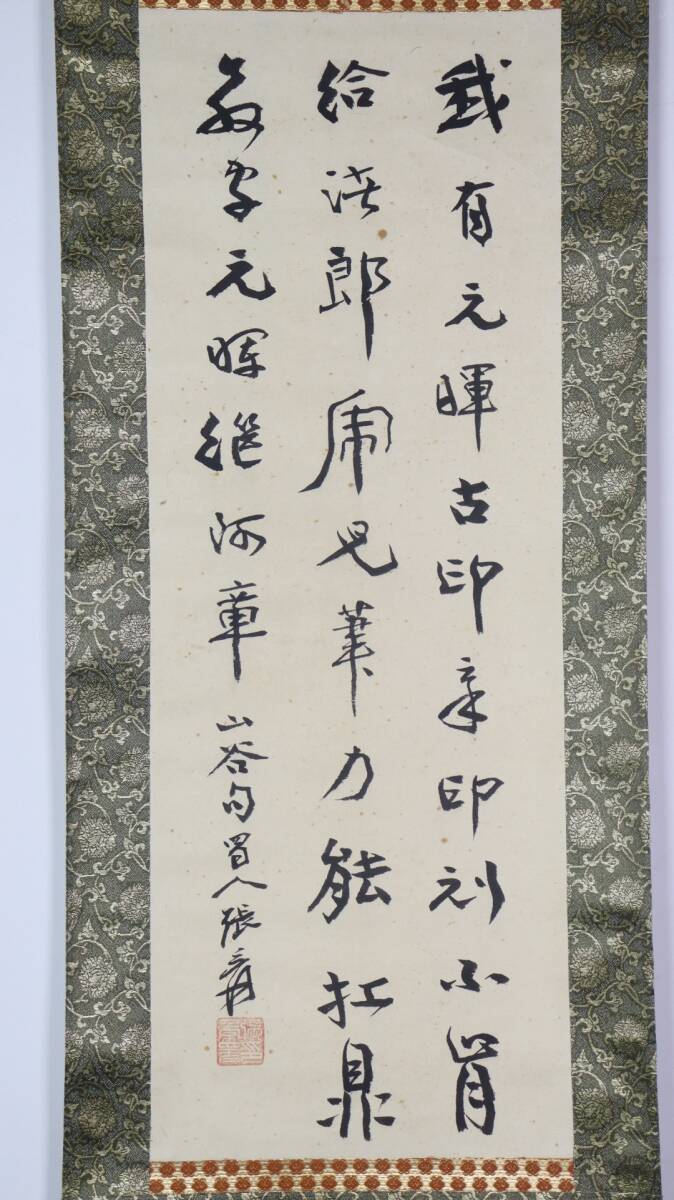 我有元暉古印章印刓不肯
給諸郎虎兒筆力能扛鼎
教字元暉繼阿章 山谷句蜀人張爰